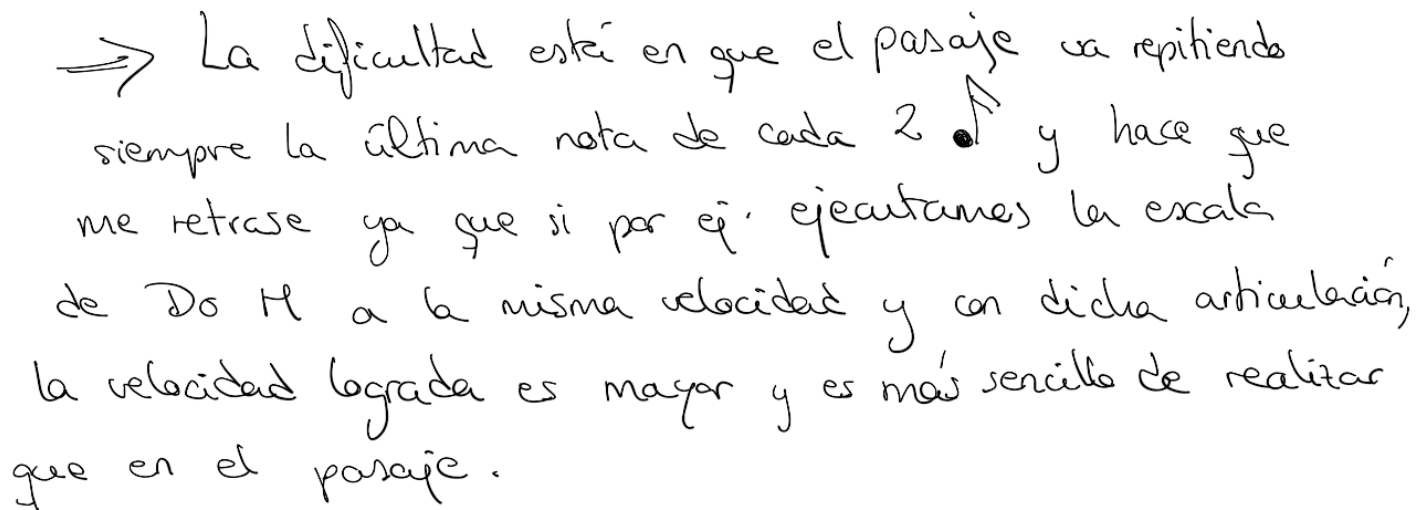 ⇒ La dificultad está en que el pasaje va repitiendo
siempre la última nota de cada 2 ♪ y hace que
me retrase ya que si por ej. ejecutamos la escala
de Do M a la misma velocidad y con dicha articulación,
la velocidad lograda es mayor y es más sencillo de realizar
que en el pasaje.